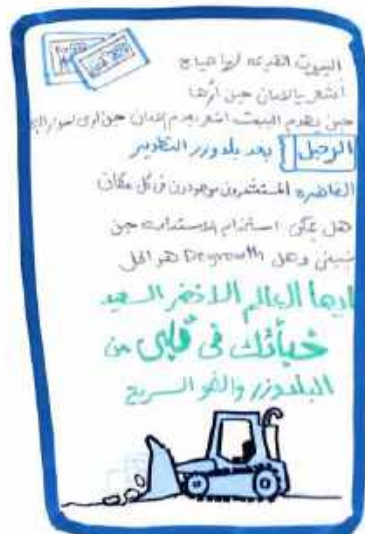 البيوت القديمة لها
أشعر بالأمان حين أراها
حين يهدم البيت أشعر بعدم الأمان حين أرى
الرحيل بعد بلدوزر التطوير
القاهرة المستثمرون موجودون في كل مكان
هل يمكن استخدام الاستدامة حين
نبني وهل Degrowth هو الحل
أيها العالم الأخضر السعيد
خبأتك في قلبي من
البلدوزر والنمو السريع